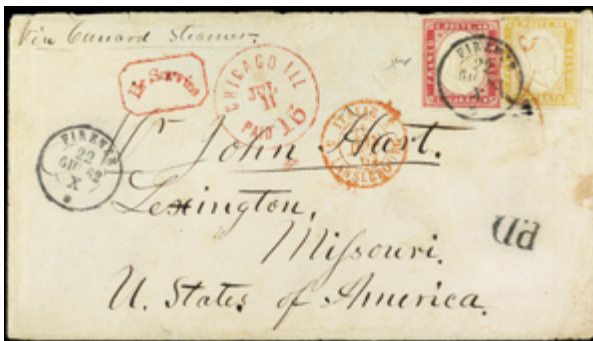 Via Cunard Steamer.
Br. Service
CHICAGO ILL
JUL
11
PAID 15
FIRENZE
22
GIU 62
X
FIRENZE
22
GIU
X
ITALIE
LANSLEBOURG
Mr. John Hart.
Lexington,
Missouri.
P.D.
U. States of America.